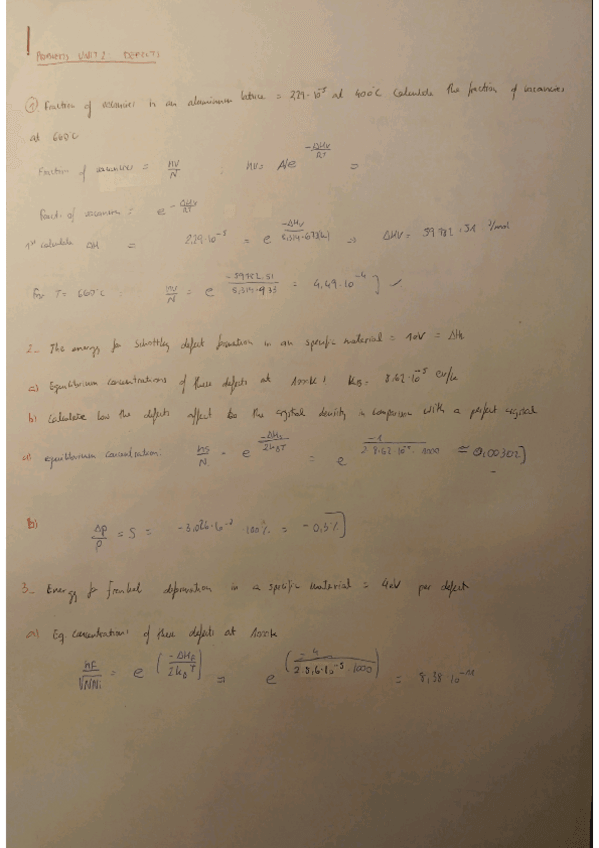 PROBLEMS UNIT 2: DEFECTS
① Fraction of vacancies in an aluminium lattice = 2,29·10⁻⁵ at 400ºC Calculate the fraction of vacancies
at 660ºC
Fraction of vacancies = nv/N : nv = A·e^(-ΔHv/RT) ⇒
Fract. of vacancies = e^(-ΔHv/RT)
1st calculate ΔH = 2,29·10⁻⁵ = e^(-ΔHv/8,314·673(k)) ⇒ ΔHv = 59782.51 J/mol
For T = 660ºC : nv/N = e^(-59782.51/8,314·933) = 4,49·10⁻⁴] ✓
2_ The energy for Schottky defect formation in an specific material = 1 eV = ΔHs
a) Equilibrium concentrations of these defects at 1000K! KB = 8.62·10⁻⁵ eV/K
b) Calculate how the defects affect to the crystal density in comparison with a perfect crystal
a) equilibrium concentration: ns/N = e^(-ΔHs/2kBT) = e^(-1/2·8.62·10⁻⁵·1000) ≅ 0,00302]
b) Δρ/ρ = S = -3,026·10⁻³ 100% = -0,3%]
3_ Energy for frenkel in a specific material = 4 eV per defect
a) Eq concentrations of these defects at 1000K
nF/√NNi = e^(-ΔHF/2kBT) = e^(-4/2·8,6·10⁻⁵·1000) = 8,38·10⁻¹¹